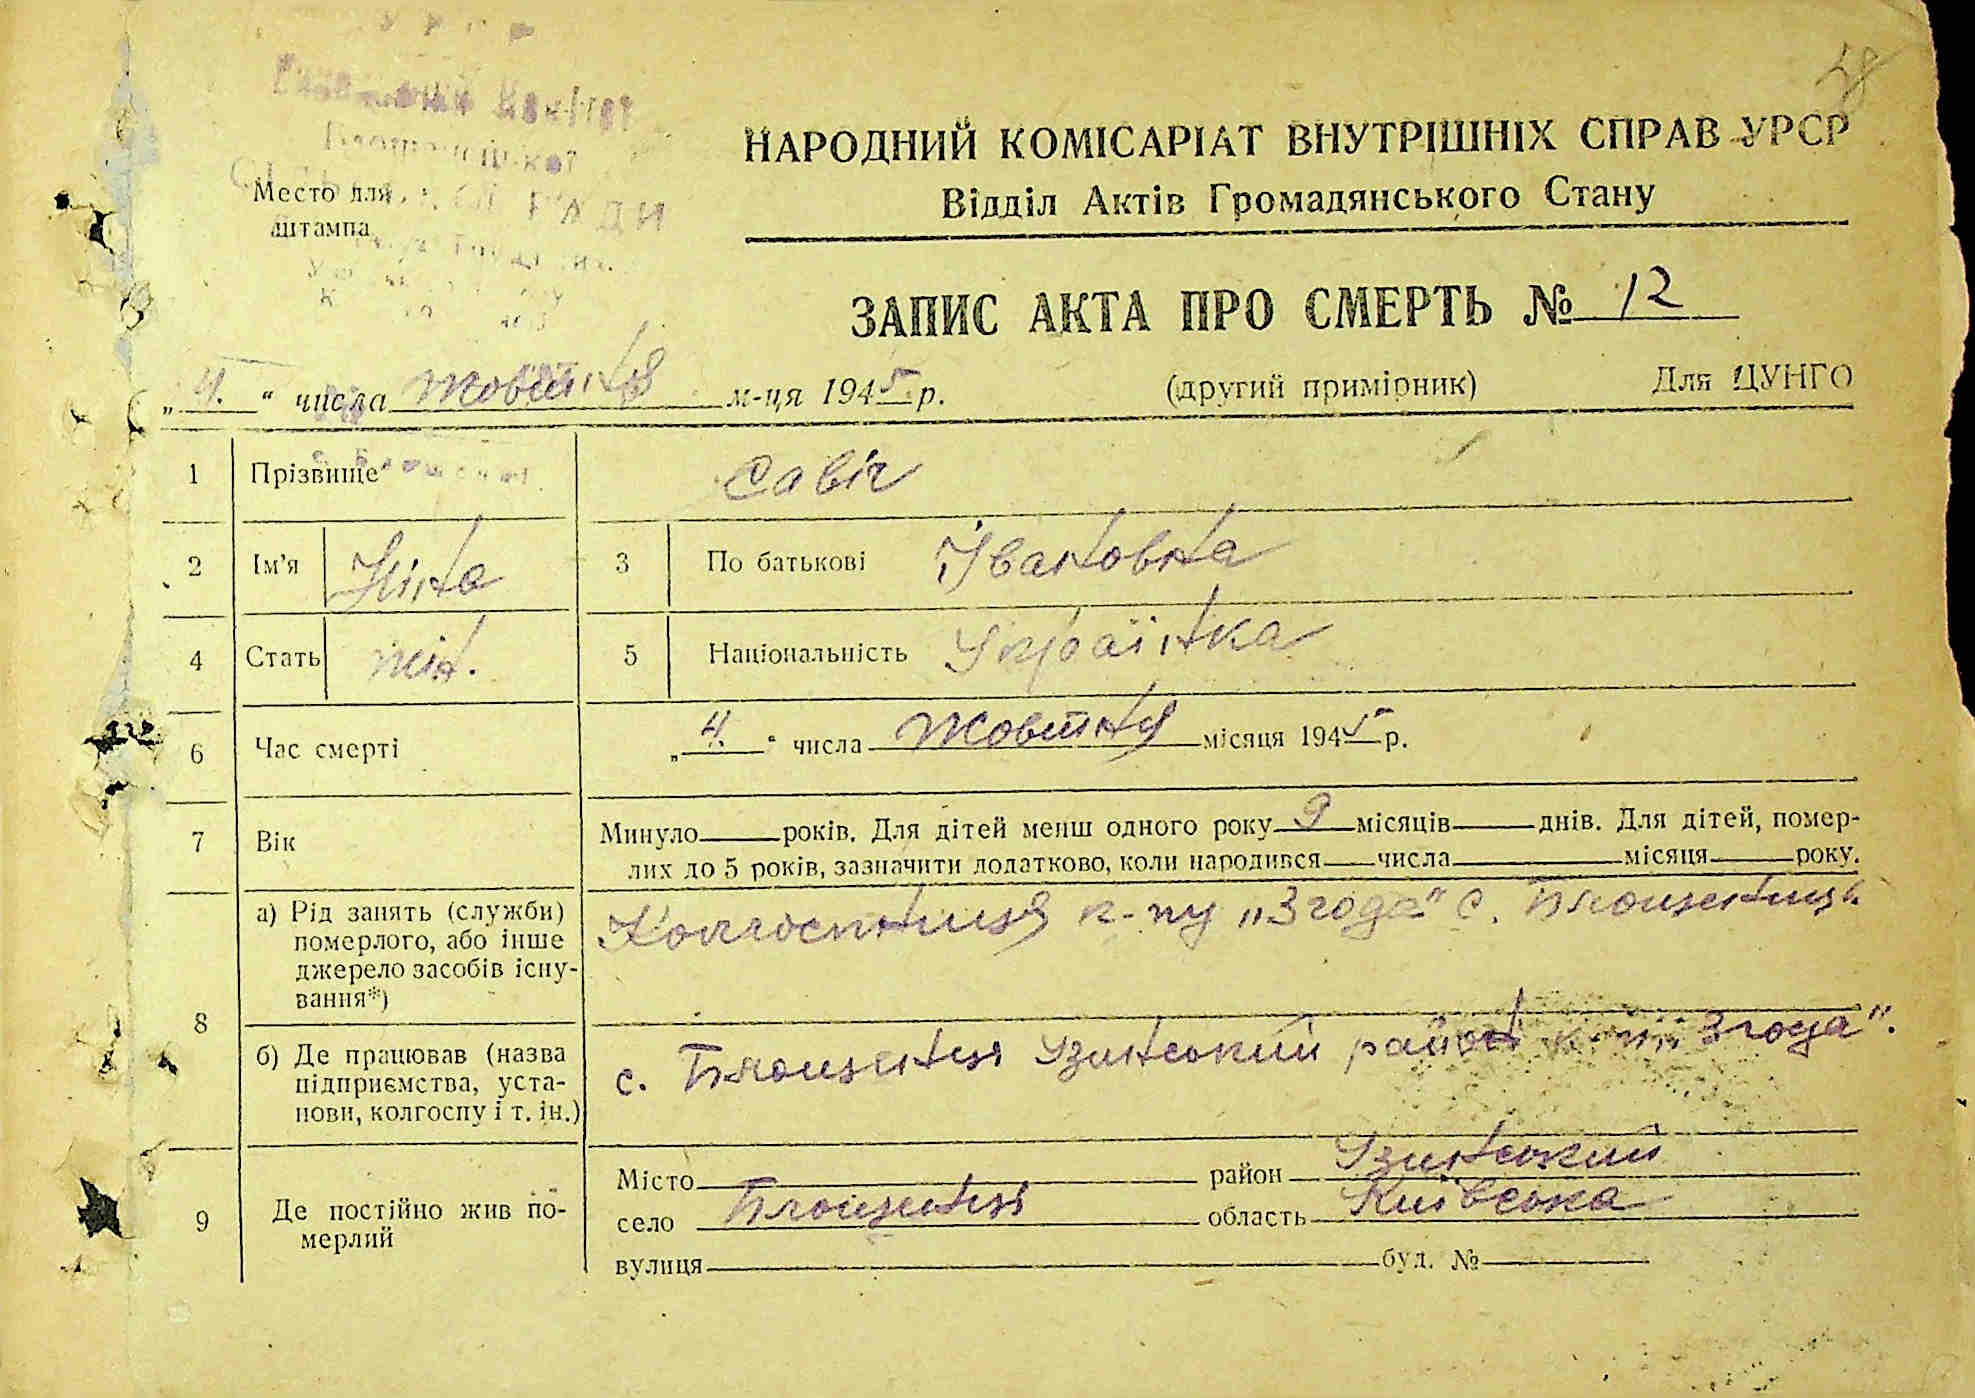 НАРОДНИЙ КОМІСАРІАТ ВНУТРІШНІХ СПРАВ УРСР
Відділ Актів Громадянського Стану
Место для
штампа
РАДИ
ЗАПИС АКТА ПРО СМЕРТЬ № 12
„4.“ числа Жовтня м-ця 1945 р. (другий примірник) Для ЦУНГО
1 Прізвище Савіч
2 Ім'я Ніна 3 По батькові Івановна
4 Стать жін. 5 Національність Українка
6 Час смерті „4.“ числа Жовтня місяця 1945 р.
7 Вік Минуло róків. Для дітей менш одного року 9 місяців днів. Для дітей, помер-
лих до 5 років, зазначити додатково, коли народився числа місяця року.
8 а) Рід занять (служби) померлого, або інше джерело засобів існу-вання*) Колгоспниця к-пу „Згода" с. Блощенці
б) Де працював (назва підприємства, уста-нови, колгоспу і т. ін.) с. Блощенці Узинський район к-п „Згода".
9 Де постійно жив по-мерлий Місто район Узинський
село Блощенці область Київська
вулиця буд. №